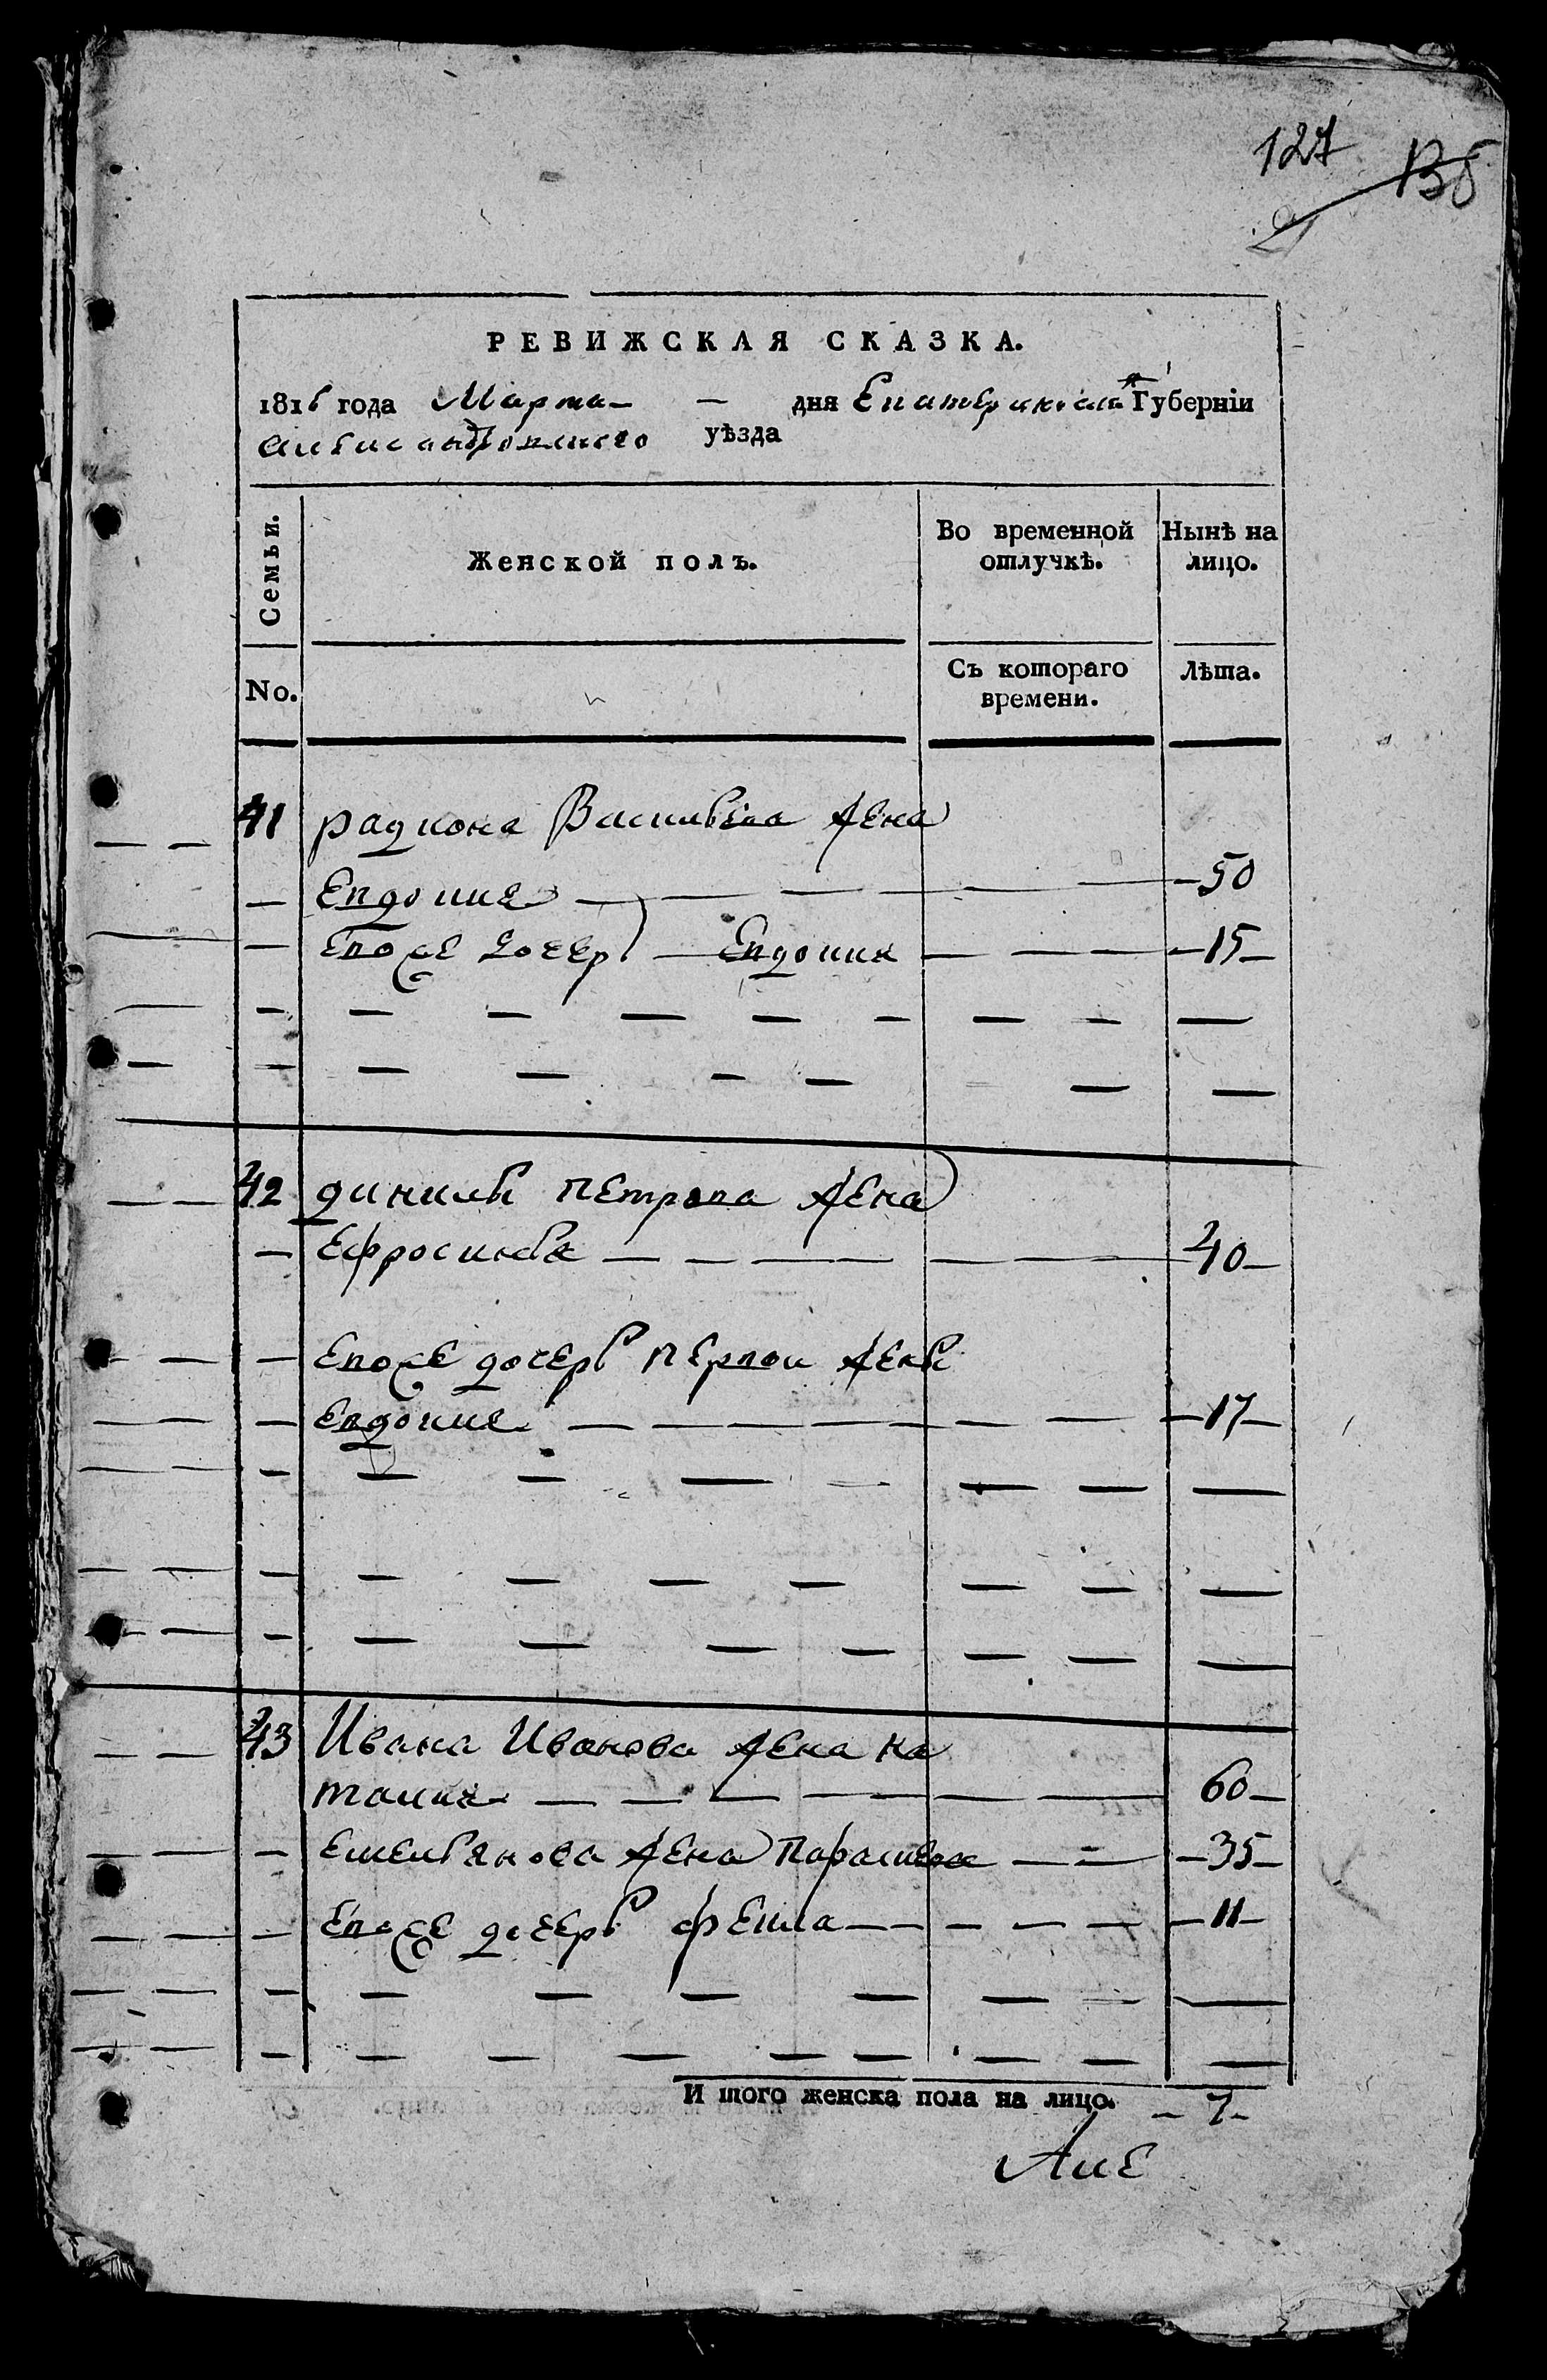 127 136
РЕВИЖСКАЯ СКАЗКА.
1816 года Марта дня Екатериносла Губернїи
Александровского уѣзда
Семьи. Женской полъ. Во временной отлучкѣ. Нынѣ на лицо.
No. Съ котораго времени. Лѣта.
41 радиона Василиева жена
Евдокия 50
Евоже дочерь Евдокия 15
42 данилы петрова жена
Ефросинья 40
Евоже дочерь первой жены
Евдокия 17
43 Ивана Иванова жена на
талия 60
Емельянова жена Парасковея 35
Евоже дочерь фекла 11
И того женска пола на лицо. 7